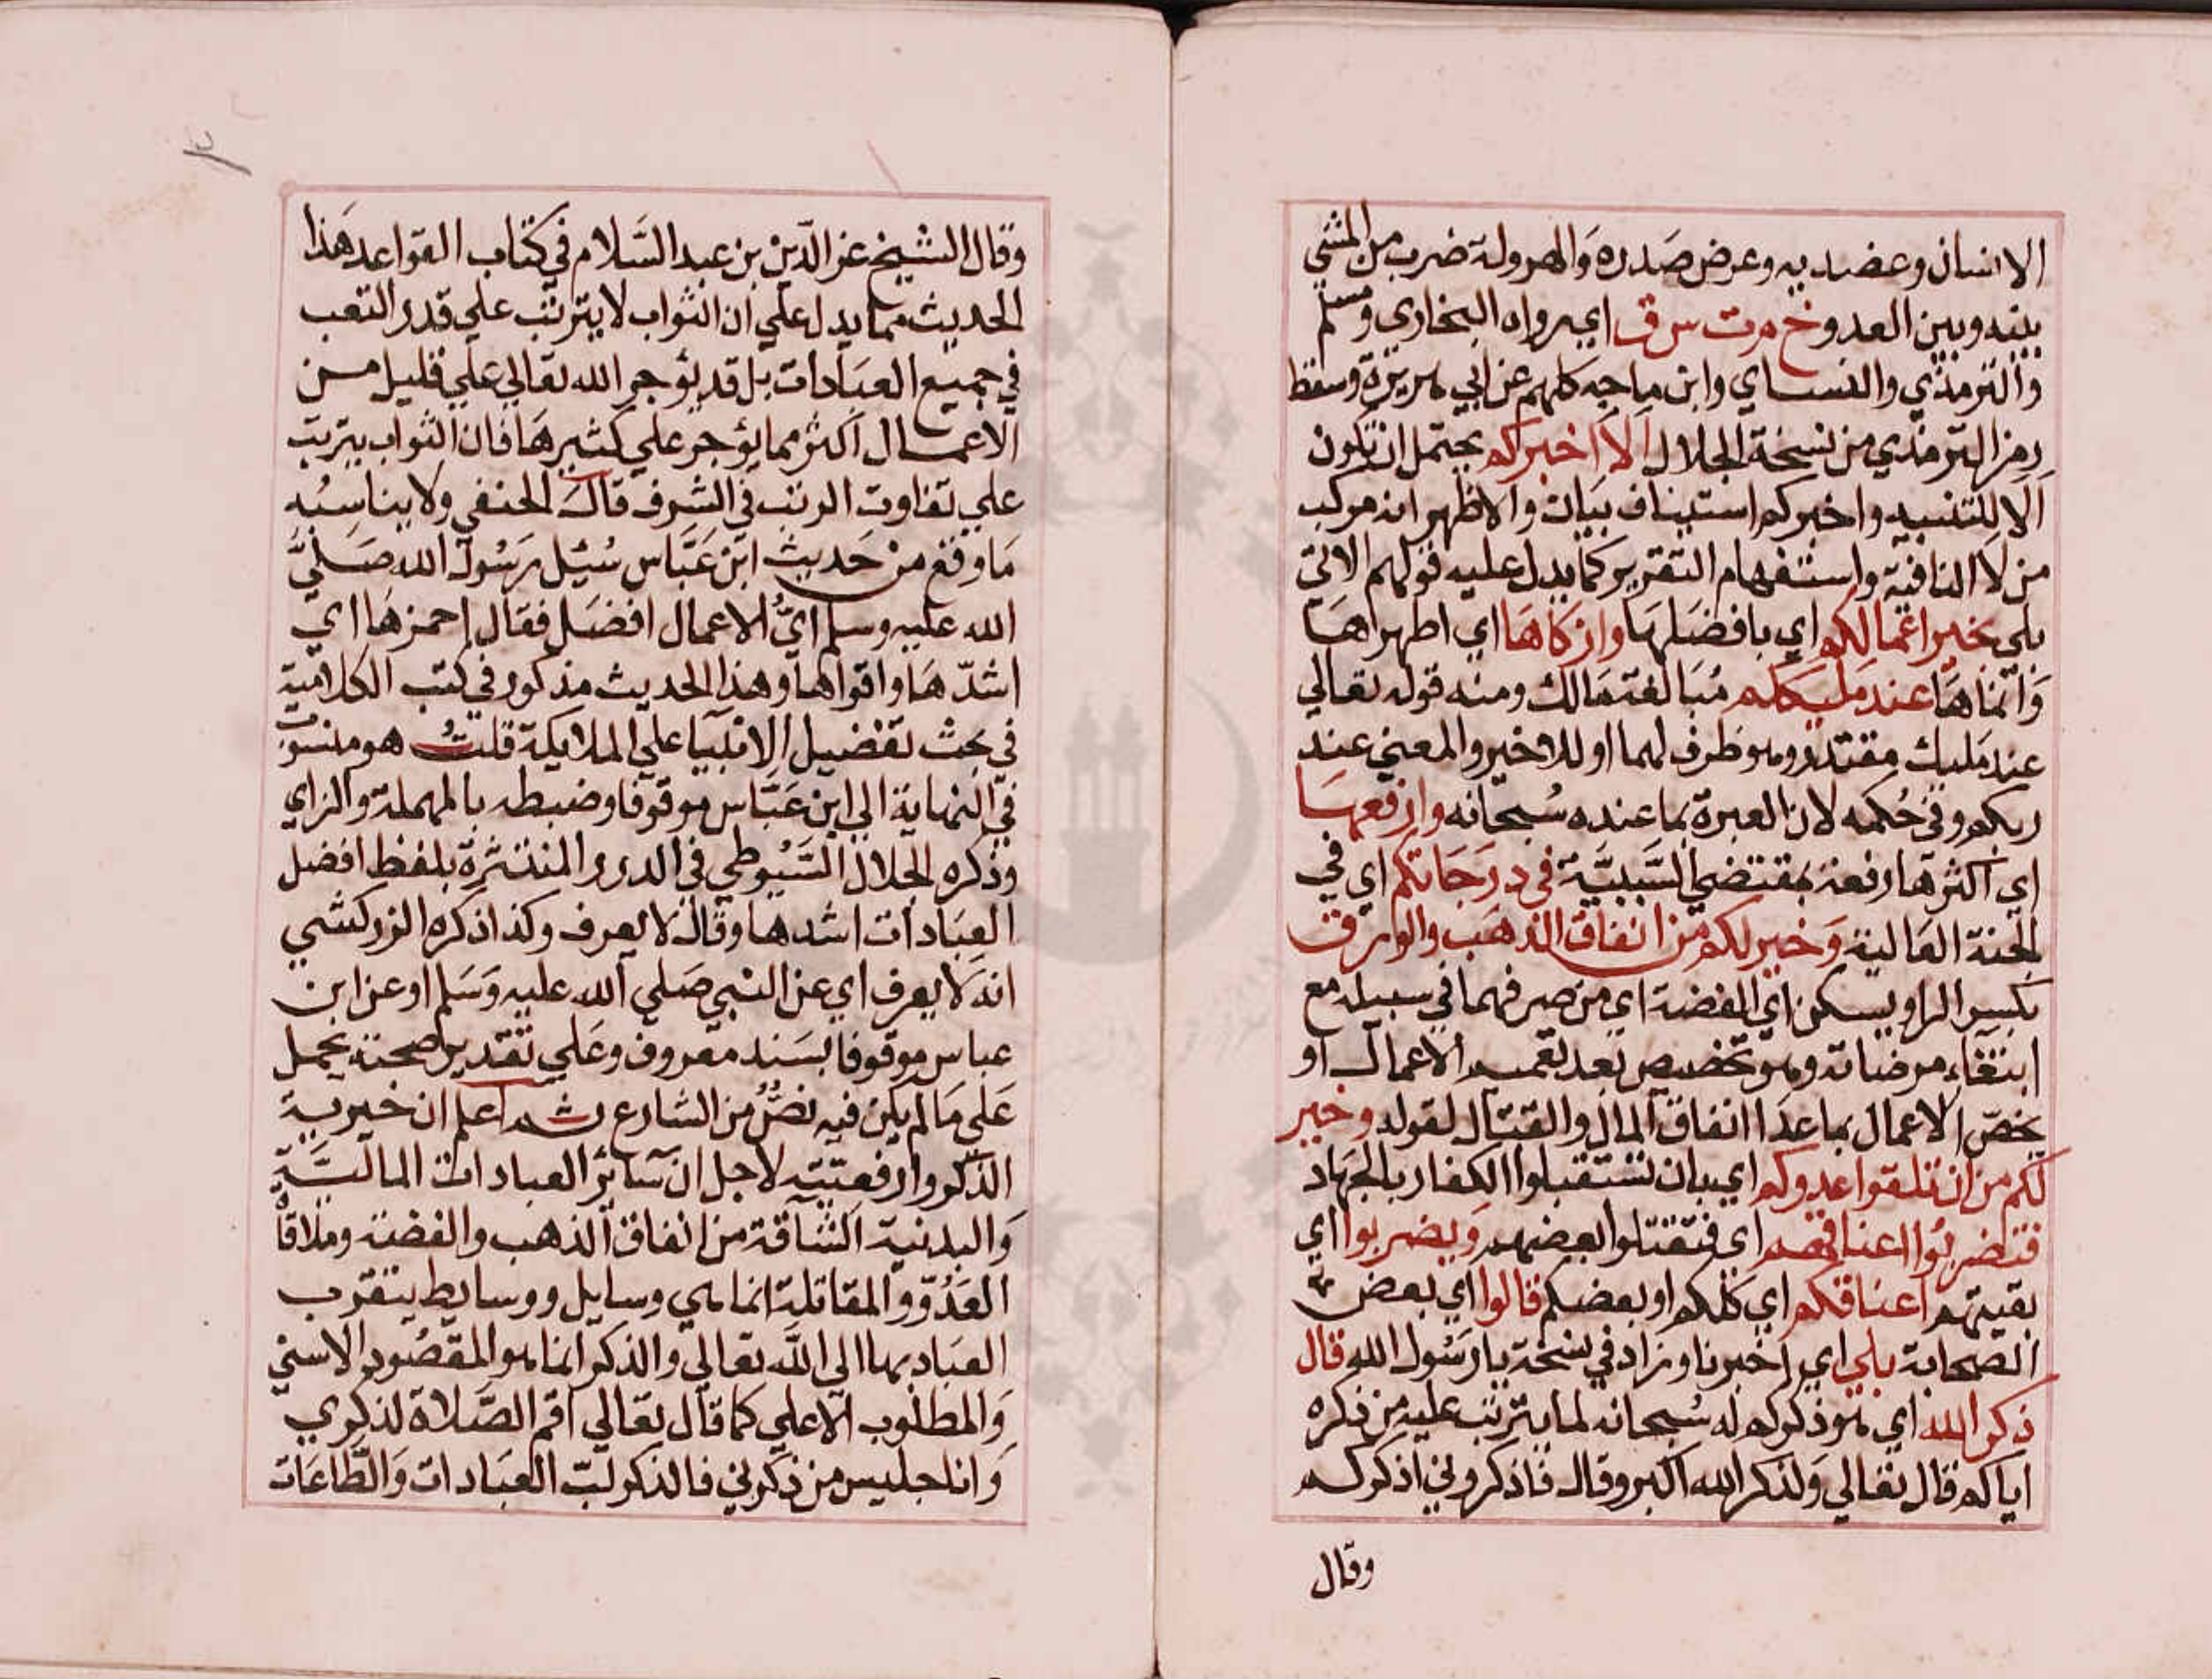 الانسان وعضديه وعرض صدره والهرولة ضرب من المشي
بينه وبين العدو خ م ت س ق اي رواه البخاري ومسلم
والترمذي والنساي وابن ماجه كلهم عن ابي هريرة وسقط
رمز الترمذي من نسخة الجلال الا اخبركم يحتمل ان تكون
الا للتنبيه واخبركم استيناف بيان والاظهر انه مركب
من لا النافية واستفهام التقرير كما يدل عليه قولهم الاتي
بلى بخير اعمالكم اي بافضلها وازكاها اي اطهراها
وانماها عند مليككم مبالغة مالك ومنه قوله تعالي
عند مليك مقتدر وهو ظرف لهما او للاخير والمعني عند
ربكم وفي حكمه لان العبرة بما عنده سبحانه وارفعها
اي اكثرها رفعة بمقتضي السببية في درجاتكم اي في
الجنة العالية وخير لكم من انفاق الذهب والورق
بكسر الرا ويسكن اي الفضة اي من صرفهما في سبيله مع
ابتغاء مرضاته وهو تخصيص بعد تعميم الاعمال او
يخص الاعمال بما عدا انفاق المال والقتال لقوله وخير
لكم من ان تلقوا عدوكم اي بان تستقبلوا الكفار بالجهاد
فتضربوا اعناقهم اي فتقتلوا بعضهم ويضربوا اي
بقيتهم اعناقكم اي كلكم او بعضكم قالوا اي بعض
الصحابة بلي اي اخبرنا وزاد في نسخة يا رسول الله قال
ذكر الله اي هو ذكركم له سبحانه لما يترتب عليه من ذكره
اياكم قال تعالي ولذكر الله اكبر وقال فاذكروني اذكركم
وقال
وقال الشيخ عز الدين بن عبد السلام في كتاب القواعد هذا
الحديث مما يدل علي ان الثواب لا يترتب علي قدر التعب
في جميع العبادات بل قد يؤجر الله تعالي علي قليل من
الاعمال اكثر مما يؤجر علي كثيرها فان الثواب يترتب
علي تفاوت الرتب في الشرف قال الحنفي ولا يناسبه
ما وقع من حديث ابن عباس سئيل رسول الله صلي
الله عليه وسلم اي الاعمال افضل فقال احمزها اي
اشدها واقواها وهذا الحديث مذكور في كتب الكلامية
في بحث تفضيل الانبيا علي الملايكة قلت هو منسوب
في النهاية الي ابن عباس موقوفا وضبطه بالمهملة والزاي
وذكره الجلال السيوطي في الدرر المنتثرة بلفظ افضل
العبادات اشدها وقال لا يعرف وكذا ذكره الزركشي
انه لا يعرف اي عن النبي صلي الله عليه وسلم او عن ابن
عباس موقوفا بسند معروف وعلي تقدير صحته يحمل
علي ما لم يكن فيه نص من الشارع ثم اعلم ان خيرية
الذكر وارفعتيته لاجل ان سائر العبادات المالية
والبدنية الشاقة من انفاق الذهب والفضة وملاقاة
العدو والمقاتلة انما هي وسايل ووسايط يتقرب
العباد بها الي الله تعالي والذكر انما هو المقصود الاسني
والمطلوب الاعلي كما قال تعالي اقم الصلاة لذكري
وانا جليس من ذكرني فالذكر لب العبادات والطاعات